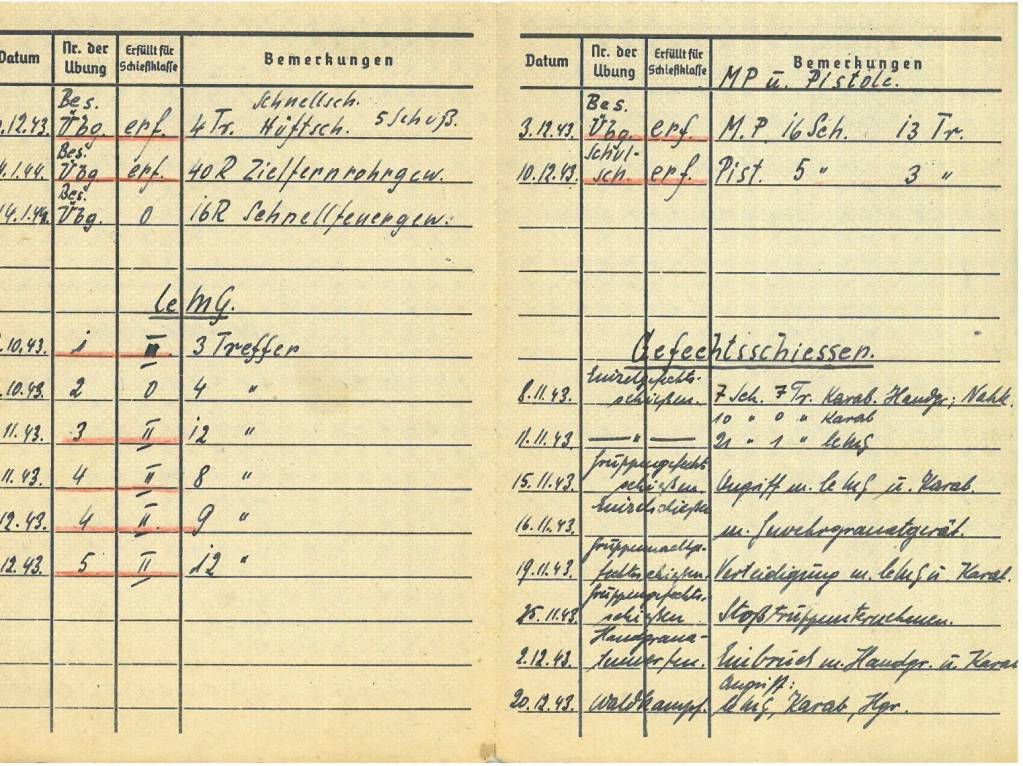 Datum Nr. der Übung Erfüllt für Schießklasse Bemerkungen
Bes. Schnellsch.
.12.43. Übg. erf. 4 Tr. Hüftsch. 5 Schuß.
Bes.
.1.44. Übg erf. 40 R Zielfernrohrgew.
Bes.
14.1.44. Übg. 0 16 R Schnellfeuergew.
le MG.
.10.43. 1 II 3 Treffer
.10.43. 2 0 4 "
11.43. 3 II 12 "
.11.43. 4 II 8 "
12.43. 4 II. 9 "
.12.43. 5 II 12 "
Datum Nr. der Übung Erfüllt für Schießklasse Bemerkungen
MP u. Pistole.
Bes.
3.12.43. Übg. erf. M.P 16 Sch. 13 Tr.
Schul-
10.12.43. sch. erf. Pist. 5 " 3 "
Gefechtsschiessen.
Einzelgefechts-
8.11.43. schießen. 7 Sch. 7 Tr. Karab. Handgr; Nahk.
10 " 0 " Karab
11.11.43 — " — 21 " 1 " le MG
Gruppengefechts
15.11.43. schießen. Angriff m. le MG u. Karab.
Einzelschießen
16.11.43. m. Gewehrgranatgerät.
19.11.43. fechtsschießen. Verteidigung m. le MG u Karab.
Gruppengefechts-
25.11.43. schießen Stoßtruppunternehmen.
Handgrana-
2.12.43. tenwerfen. Einbruch m. Handgr. u. Karab
Angriff:
20.12.43. Waldkampf. le MG, Karab, Hgr.